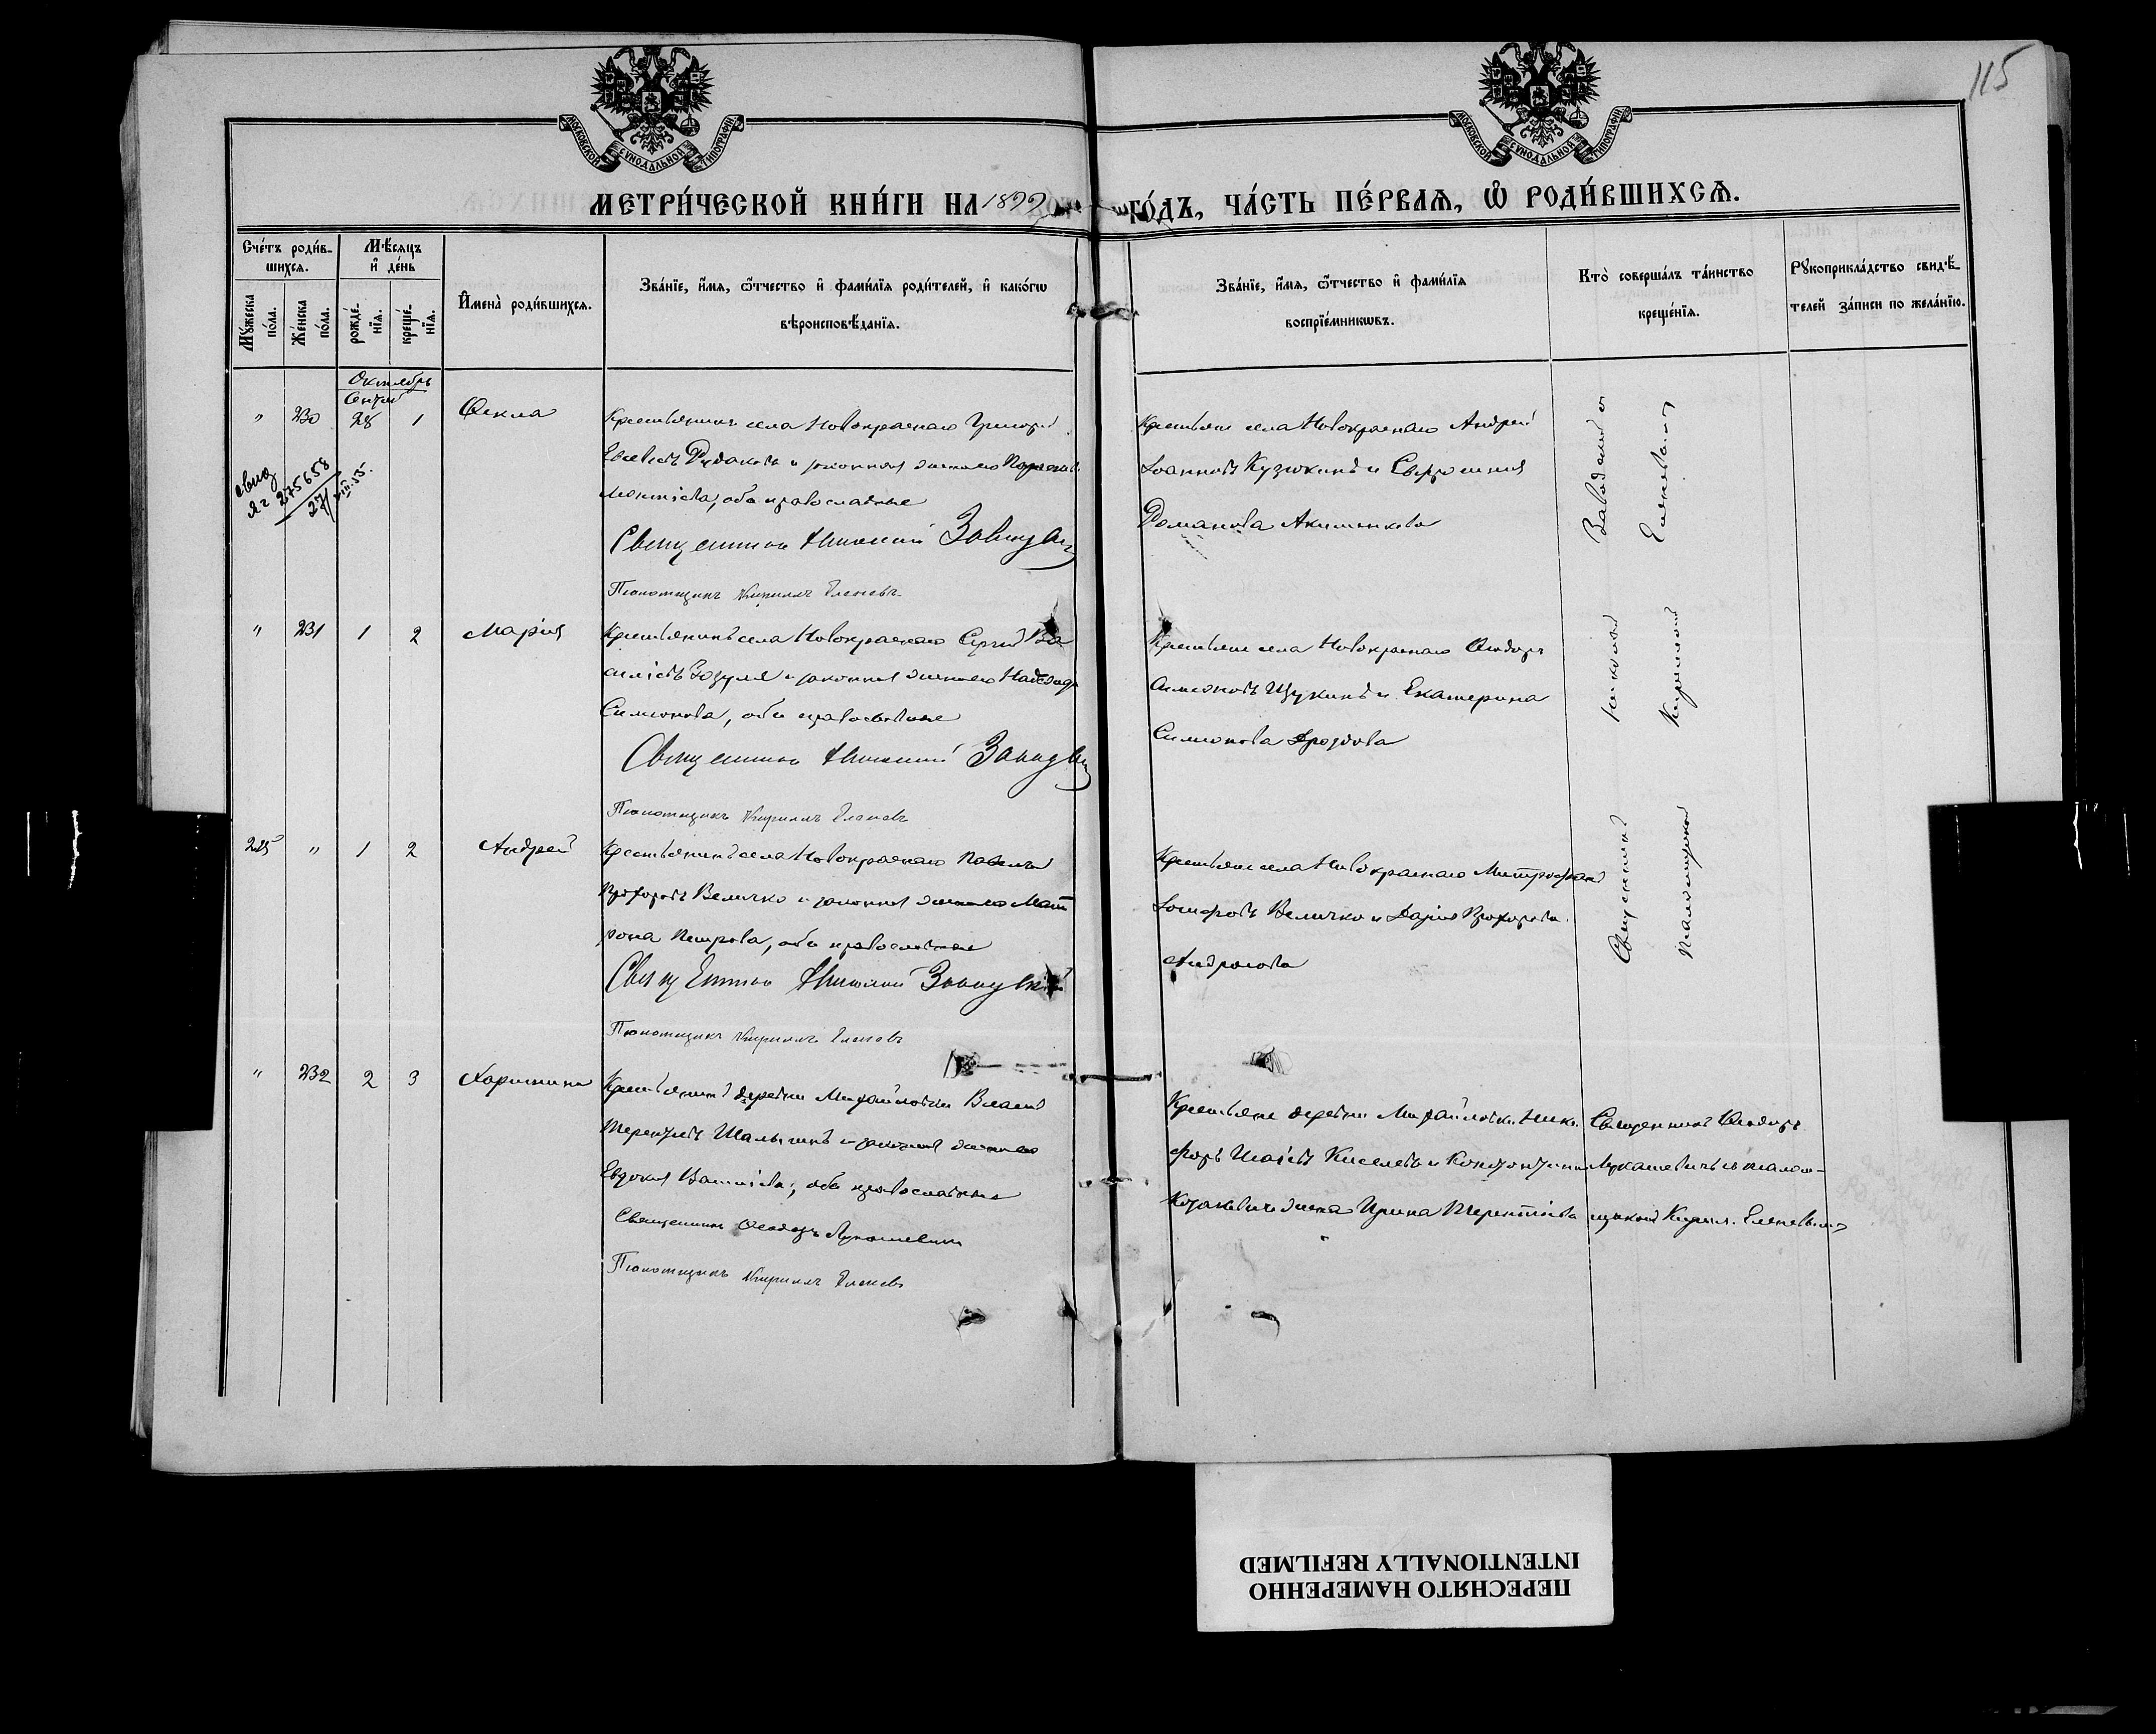 115
МОСКОВСКОЙ СѴНОДАЛЬНОЙ ТИПОГРАФІИ
МОСКОВСКОЙ СѴНОДАЛЬНОЙ ТИПОГРАФІИ
МЕТРИ́ЧЕСКОЙ КНИ́ГИ НА 1899 ГО́ДЪ, ЧА́СТЬ ПЕ́РВАѦ, Ѡ҆ РОДИ́ВШИХСѦ.
Сче́тъ роди́в-
шихсѧ.
Мꙋ́жеска по́ла.
Же́нска по́ла.
Мѣ́сѧцъ
и҆ де́нь
рожде́-
нїѧ.
креще́-
нїѧ.
И҆мена̀ роди́вшихсѧ.
Зва́нїе, и҆́мѧ, ѻ҆́тчество и҆ фами́лїѧ роди́телей, и҆ како́гѡ
вѣроисповѣ́данїѧ.
Зва́нїе, и҆́мѧ, ѻ҆́тчество и҆ фами́лїѧ
воспрїе́мникѡвъ.
Кто̀ соверша́лъ та́инство
креще́нїѧ.
Рꙋкоприкла́дство свидѣ́-
телей за́писи по жела́нїю.
Октябрь
" 230 28 1 Ѳекла
Крестьянинъ села Новокраснаго Григорій
Рудаковъ и законная жена его
обa православные
Священникъ Николай
Псаломщикъ Кириллъ Еленевъ
275658
Крестьяне села Новокраснаго Андрей
Іоанновъ Кузюкинъ и Евфросинія
Романова Акименкова
" 231 1 2 Марія
Крестьянинъ села Новокраснаго Сергій Ва
силіевъ Зозуля и законная жена его Надежда
Симеонова, оба православные
Священникъ Николай
Псаломщикъ Кириллъ Еленевъ
Крестьяне села Новокраснаго Ѳеодоръ
Симеоновъ Щукинъ и Екатерина
Симеонова Дроздова
225 " 1 2 Андрей
Крестьянинъ села Новокраснаго Павелъ
Прохоровъ Величко и законная жена его Мат
рона Петрова, оба православные
Священникъ Николай
Псаломщикъ Кириллъ Еленевъ
Крестьяне села Новокраснаго Митрофанъ
Іосифовъ Величко и Дарія Прохорова
Андронова
Священникъ Николай
псаломщикомъ Кирилломъ Еленевымъ
" 232 2 3 Харитина
Крестьянинъ деревни Михайловки Власій
Терентіевъ и законная жена его
Евдокія Василіева, оба православные
Священникъ Ѳеодоръ Лукашевичъ
Псаломщикъ Кириллъ Еленевъ
Крестьяне деревни Михайловки Ники
форъ Киселевъ и
жена Ирина Терентіева
Священникъ Ѳеодоръ
Лукашевичъ съ псалом-
щикомъ Кирил. Еленевымъ
ПЕРЕСНЯТО НАМЕРЕННО
INTENTIONALLY REFILMED